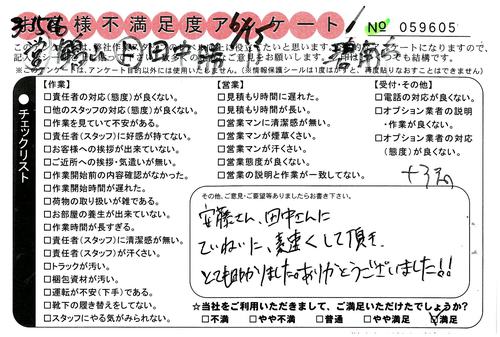 お客様不満足度アンケート
№ 059605
6/15
チェックリスト
【作業】
□責任者の対応(態度)が良くない。
□他のスタッフの対応(態度)が良くない。
□作業を見ていて不安がある。
□責任者(スタッフ)に好感が持てない。
□お客様への挨拶が出来ていない。
□ご近所への挨拶・気遣いが無い。
□作業開始前の内容確認がなかった。
□作業開始時間が遅れた。
□荷物の取り扱いが雑である。
□お部屋の養生が出来ていない。
□作業時間が長すぎる。
□責任者(スタッフ)に清潔感が無い。
□責任者(スタッフ)が汗くさい。
□トラックが汚い。
□梱包資材が汚い。
□運転が不安(下手)である。
□靴下の履き替えをしてない。
□スタッフにやる気がみられない。
【営業】
□見積もり時間に遅れた。
□見積もり時間が長い。
□営業マンに清潔感が無い。
□営業マンが煙草くさい。
□営業マンが汗くさい。
□営業態度が良くない。
□営業の説明と作業が一致してない。
【受付・その他】
□電話の対応が良くない。
□オプション業者の説明
・作業が良くない。
□オプション業者の対応
(態度)が良くない。
その他、ご意見・ご要望等ありましたらお書き下さい。
安藤さん、田中さんに
ていねいに、素速くして頂き、
とても助かりました。ありがとうございました!!
☆当社をご利用いただきまして、ご満足いただけたでしょうか?
□不満 □やや不満 □普通 □やや満足 ☑満足